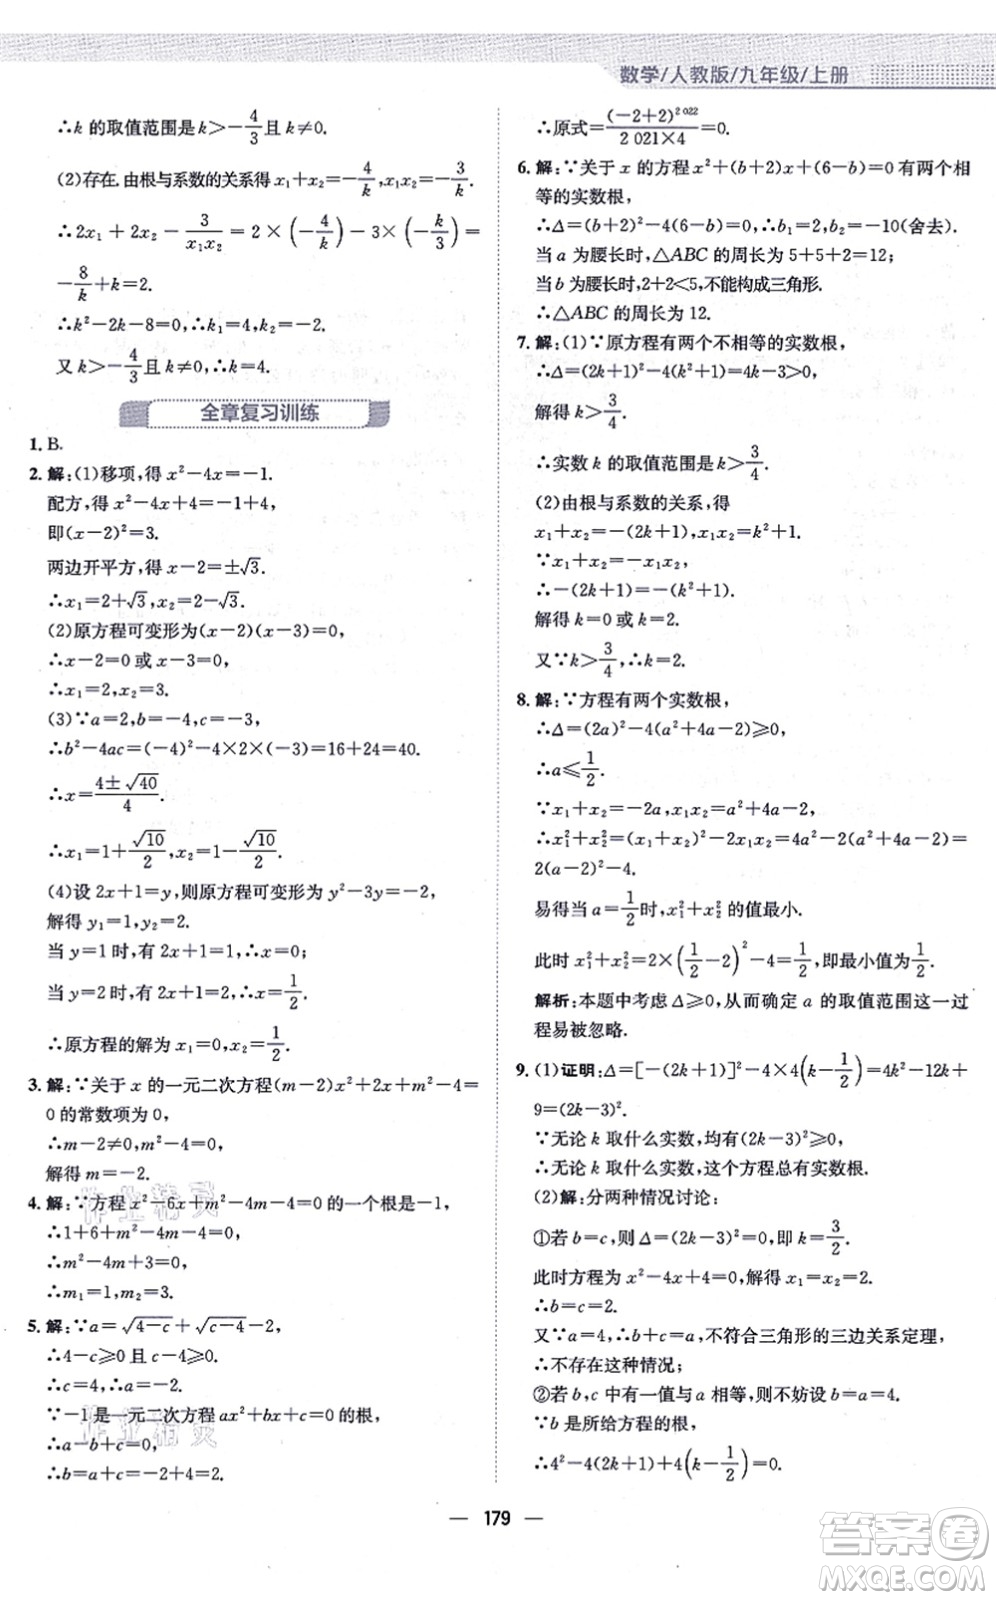 数学/人教版/九年级/上册
∴k 的取值范围是 k>−4/3 且 k≠0.
(2)存在.由根与系数的关系得 x₁+x₂=−4/k,x₁x₂=−3/k.
∴2x₁+2x₂−3/(x₁x₂)=2×(−4/k)−3×(−k/3)=
−8/k+k=2.
∴k²−2k−8=0,∴k₁=4,k₂=−2.
又 k>−4/3 且 k≠0,∴k=4.
全章复习训练
1. B.
2. 解:(1)移项,得 x²−4x=−1.
配方,得 x²−4x+4=−1+4,
即(x−2)²=3.
两边开平方,得 x−2=±√3.
∴x₁=2+√3,x₂=2−√3.
(2)原方程可变形为(x−2)(x−3)=0,
∴x−2=0 或 x−3=0,
∴x₁=2,x₂=3.
(3)∵a=2,b=−4,c=−3,
∴b²−4ac=(−4)²−4×2×(−3)=16+24=40.
∴x=(4±√40)/4.
∴x₁=1+√10/2,x₂=1−√10/2.
(4)设 2x+1=y,则原方程可变形为 y²−3y=−2,
解得 y₁=1,y₂=2.
当 y=1 时,有 2x+1=1,∴x=0;
当 y=2 时,有 2x+1=2,∴x=1/2.
∴原方程的解为 x₁=0,x₂=1/2.
3. 解:∵关于 x 的一元二次方程(m−2)x²+2x+m²−4=
0 的常数项为 0,
∴m−2≠0,m²−4=0,
解得 m=−2.
4. 解:∵方程 x²−6x+m²−4m−4=0 的一个根是−1,
∴1+6+m²−4m−4=0,
∴m²−4m+3=0,
∴m₁=1,m₂=3.
5. 解:∵a=√(4−c)+√(c−4)−2,
∴4−c≥0 且 c−4≥0.
∴c=4,∴a=−2.
∵−1 是一元二次方程 ax²+bx+c=0 的根,
∴a−b+c=0,
∴b=a+c=−2+4=2.
∴原式=(−2+2)²⁰²²/(2 021×4)=0.
6. 解:∵关于 x 的方程 x²+(b+2)x+(6−b)=0 有两个相
等的实数根,
∴Δ=(b+2)²−4(6−b)=0,∴b₁=2,b₂=−10(舍去).
当 a 为腰长时,△ABC 的周长为 5+5+2=12;
当 b 为腰长时,2+2<5,不能构成三角形.
∴△ABC 的周长为 12.
7. 解:(1)∵原方程有两个不相等的实数根,
∴Δ=(2k+1)²−4(k²+1)=4k−3>0,
解得 k>3/4.
∴实数 k 的取值范围是 k>3/4.
(2)由根与系数的关系,得
x₁+x₂=−(2k+1),x₁x₂=k²+1.
∵x₁+x₂=−x₁x₂,
∴−(2k+1)=−(k²+1).
解得 k=0 或 k=2.
又∵k>3/4,∴k=2.
8. 解:∵方程有两个实数根,
∴Δ=(2a)²−4(a²+4a−2)≥0,
∴a≤1/2.
∵x₁+x₂=−2a,x₁x₂=a²+4a−2,
∴x₁²+x₂²=(x₁+x₂)²−2x₁x₂=4a²−2(a²+4a−2)=
2(a−2)²−4.
易得当 a=1/2时,x₁²+x₂² 的值最小.
此时 x₁²+x₂²=2×(1/2−2)²−4=1/2,即最小值为1/2.
解析:本题中考虑 Δ≥0,从而确定 a 的取值范围这一过
程易被忽略.
9. (1)证明:Δ=[−(2k+1)]²−4×4(k−1/2)=4k²−12k+
9=(2k−3)².
∵无论 k 取什么实数,均有(2k−3)²≥0,
∴无论 k 取什么实数,这个方程总有实数根.
(2)解:分两种情况讨论:
①若 b=c,则 Δ=(2k−3)²=0,∴k=3/2.
此时方程为 x²−4x+4=0,解得 x₁=x₂=2,
∴b=c=2.
又∵a=4,∴b+c=a,不符合三角形的三边关系定理,
∴不存在这种情况;
②若 b,c 中有一值与 a 相等,则不妨设 b=a=4.
∵b 是所给方程的根,
∴4²−4(2k+1)+4(k−1/2)=0.
— 179 —
作业精灵
作业精灵
答案圈
MXQE.COM